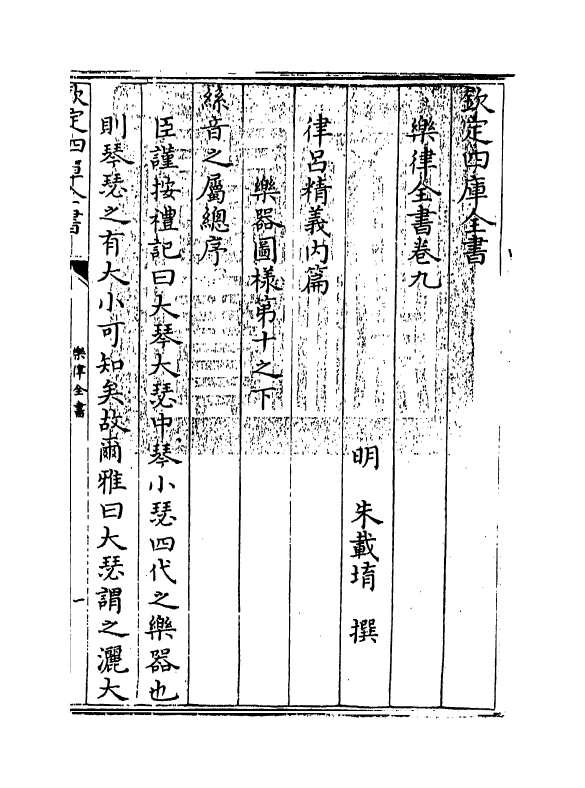 欽定四庫全書
樂律全書卷九
明 朱載堉 撰
律呂精義內篇
樂器圖様第十之下
絲音之屬總序
臣謹按禮記曰大琴大瑟中琴小瑟四代之樂器也
則琴瑟之有大小可知矣故爾雅曰大瑟謂之灑大
欽定四庫全書
樂律全書
一